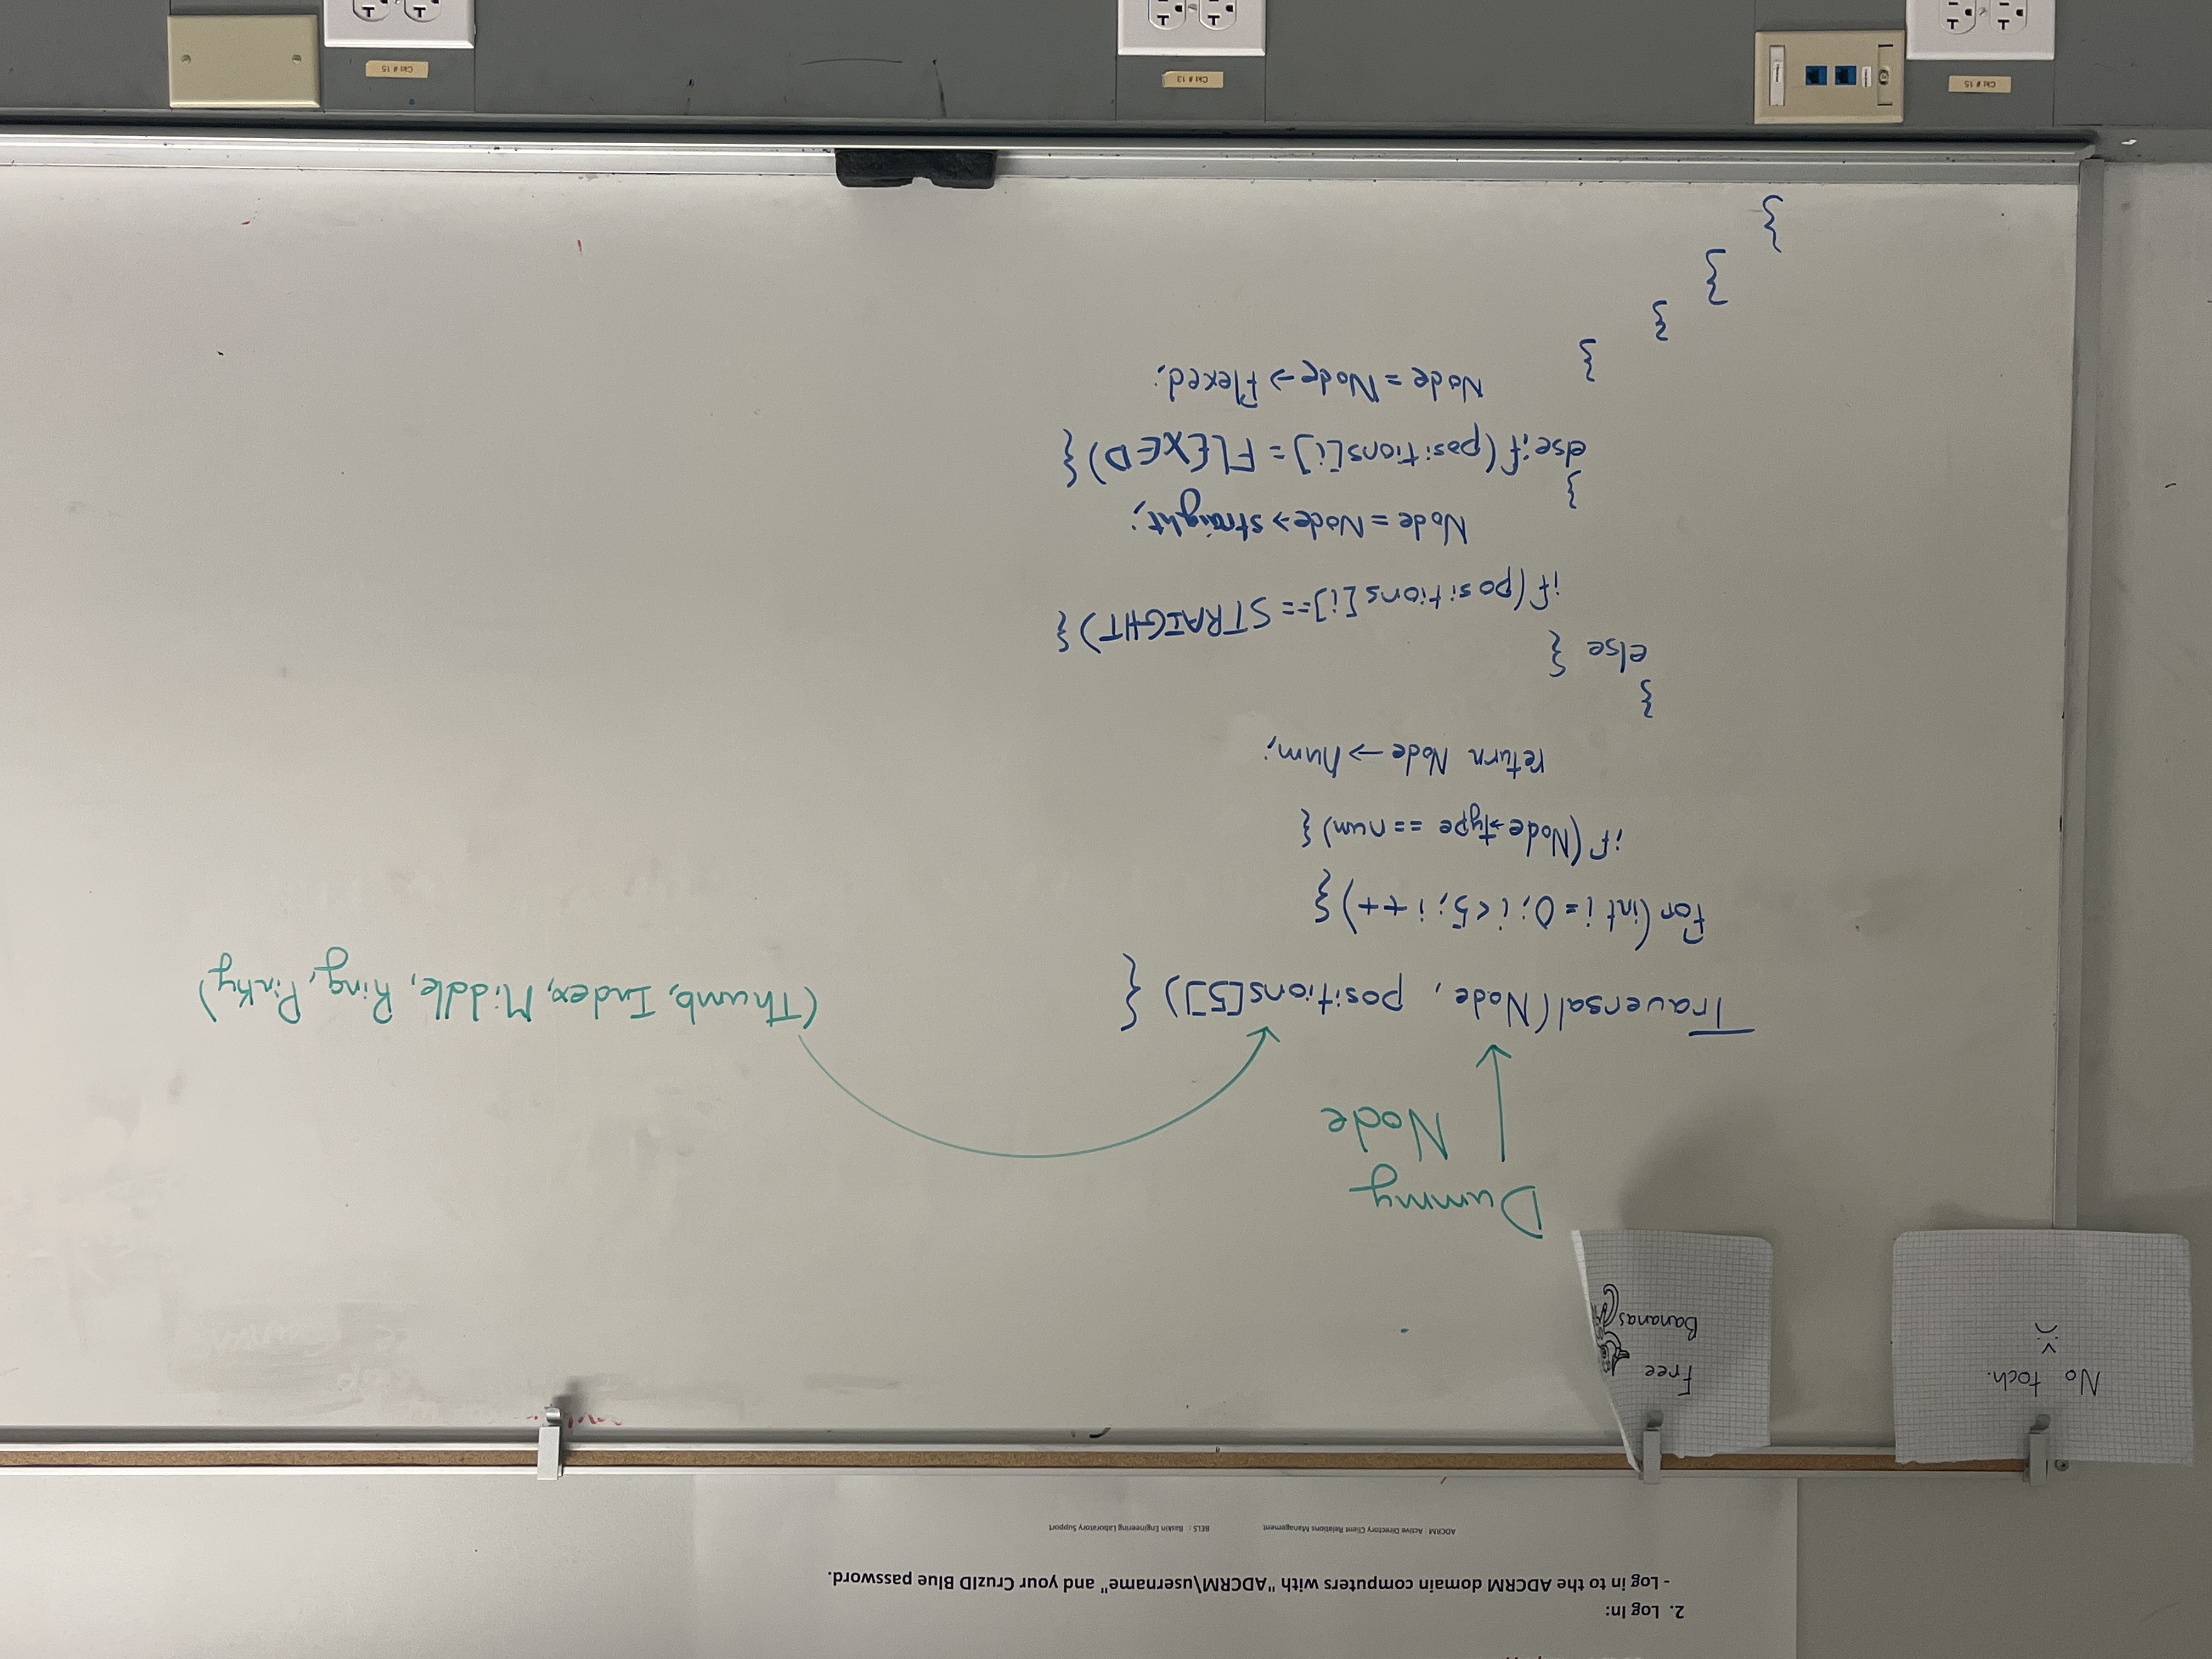 2. Log In:
- Log in to the ADCRM domain computers with "ADCRM\username" and your CruzID Blue password.
ADCRM : Active Directory Client Relations Management BELS : Baskin Engineering Laboratory Support
No toch.
Free
Bananas
Dummy
Node
Traversal(Node, positions[5]) {
(Thumb, Index, Middle, Ring, Pinky)
for(int i=0; i<5; i++){
if(Node→type ==num){
return Node→num;
}
else {
if(positions[i]==STRAIGHT){
Node=Node→straight;
}
elseif(positions[i]=FLEXED){
Node=Node→flexed;
}
}
}
}
Ckt # 15
Ckt # 13
Ckt # 15